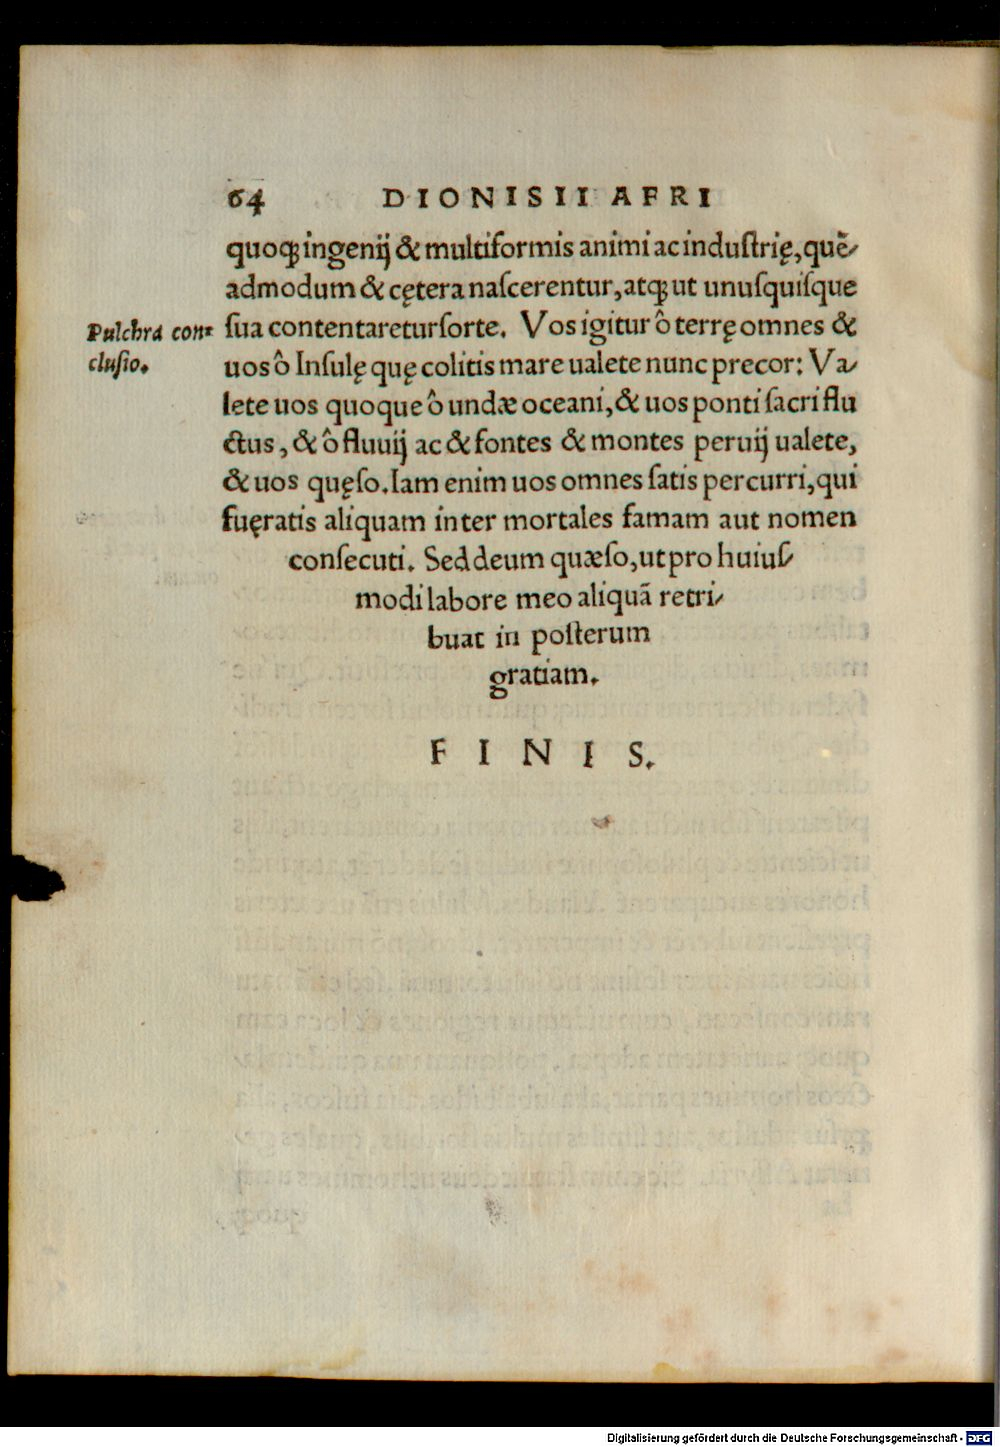 64 DIONISII AFRI
quoqꝫ ingenij & multiformis animi ac induſtrię, quē⸗
admodum & cętera naſcerentur, atqꝫ ut unuſquiſque
Pulchra con⸗
cluſio.
ſua contentaretur ſorte. Vos igitur ô terrę omnes &
uos ô Inſulę quę colitis mare ualete nunc precor: Va⸗
lete uos quoque ô undæ oceani, & uos ponti ſacri flu
ctus, & ô fluuij ac & fontes & montes peruij ualete,
& uos quęſo. Iam enim uos omnes ſatis percurri, qui
fuęratis aliquam inter mortales famam aut nomen
conſecuti. Sed deum quæſo, ut pro huiuſ⸗
modi labore meo aliquā retri⸗
buat in poſterum
gratiam.
FINIS.
Digitalisierung gefördert durch die Deutsche Forschungsgemeinschaft - DFG